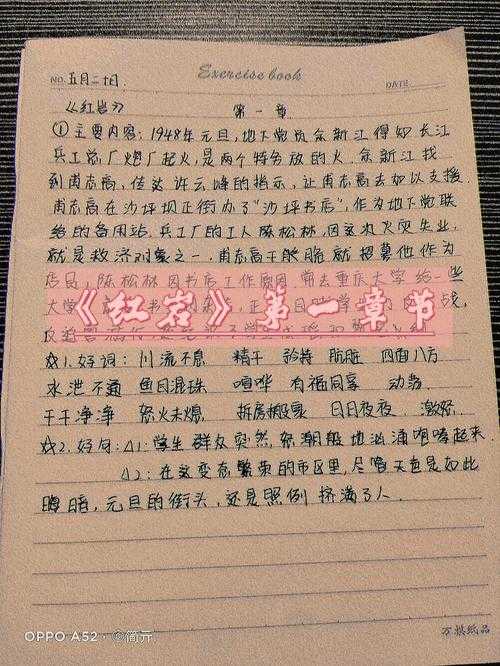 Exercise book
NO. 五月二十日.
DATE
《红岩》 第一章
① 主要内容: 1948年元旦,地下党员余新江得知长江
兵工总厂炮厂起火,是两个特务放的火,余新江找
到甫志高,传达许云峰的指示,让甫志高去加以支援.
甫志高在沙坪坝正街办了"沙坪书店",作为地下党联
络的备用站.兵工厂的工人陈松林,因义火灾失业,
就是救济对象之一,甫志高干脆就把募他作为
店员,陈松林因书店工作原因,常去重庆大学给一些
大学
战,
《红岩》第一章节
☆1.好词: 川流不息 精干 矜持 肮脏 四面八方
水泄不通 鱼目混珠 喧哗 有福同享 动荡
干干净净 怒火未熄 拆房搬家 日日夜夜 激怒
☆2.好句: △1:学生群众突然,怒潮般地汹涌咆哮起来
△2:在这变态繁荣的市区里,尽管天色是如此
阴暗,元旦的街头,还是照例挤满了人.
万祺纸品
OPPO A52 · ©简亓